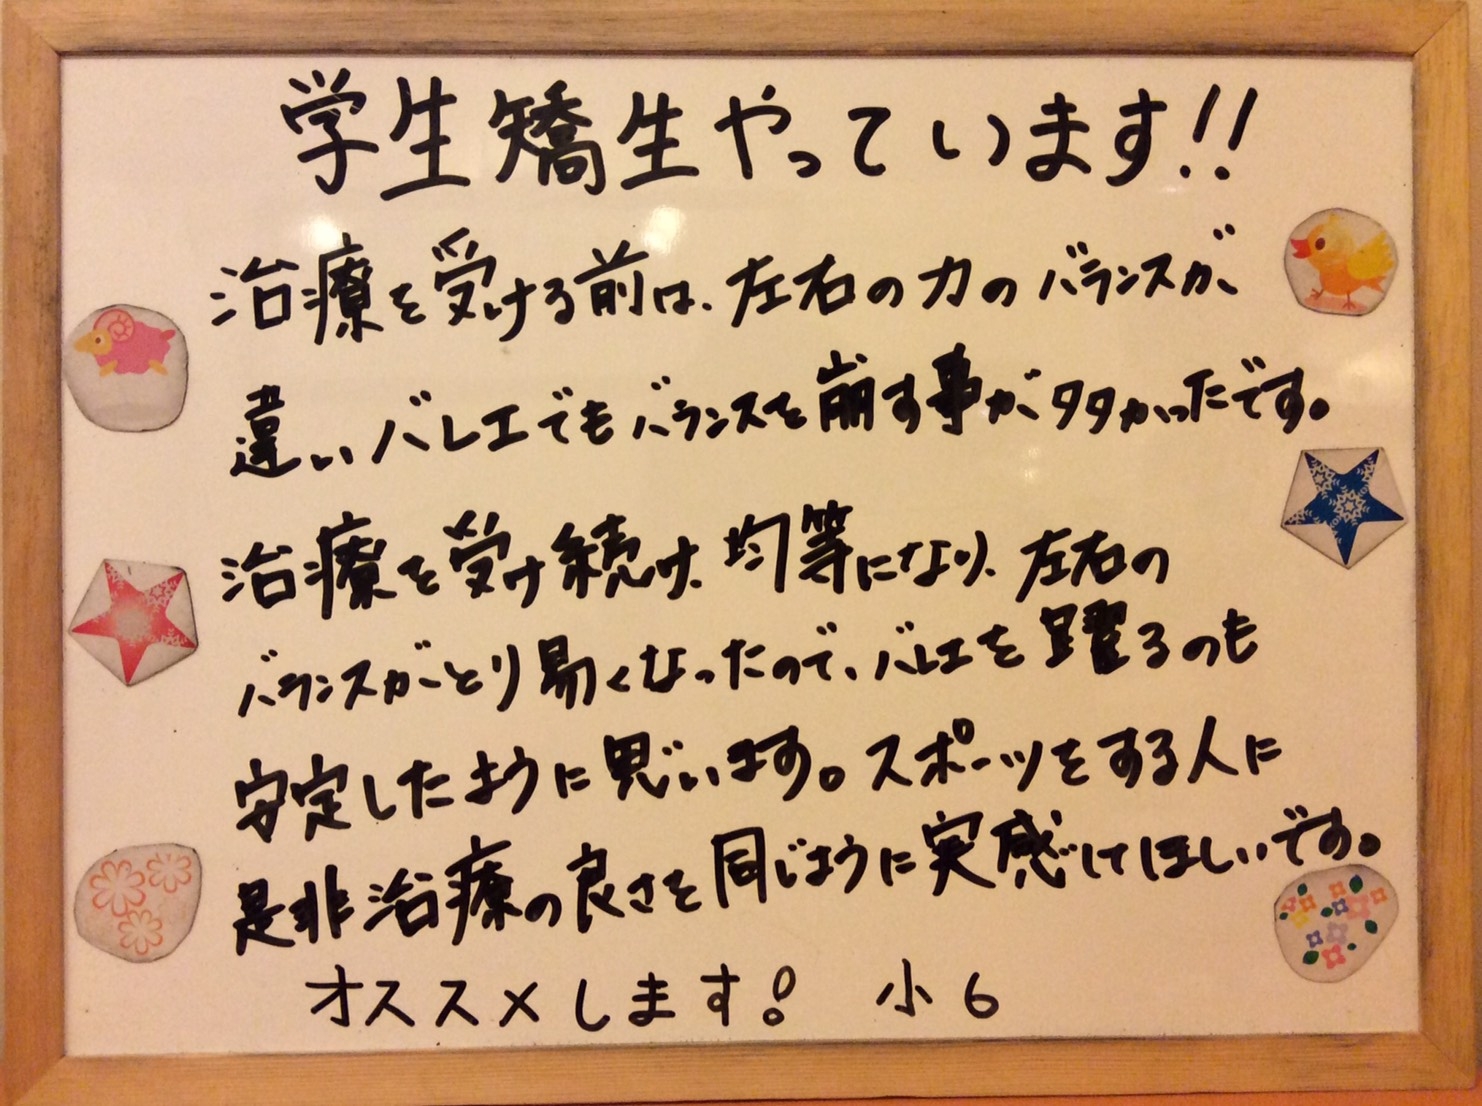 学生矯生やっています!!
治療を受ける前は、左右の力のバランスが、
違いバレエでもバランスを崩す事が多かったです。
治療を受け続け、均等になり、左右の
バランスがとり易くなったので、バレエを躍るのも
安定したように思います。スポーツをする人に
是非治療の良さを同じように実感してほしいです。
オススメします! 小6